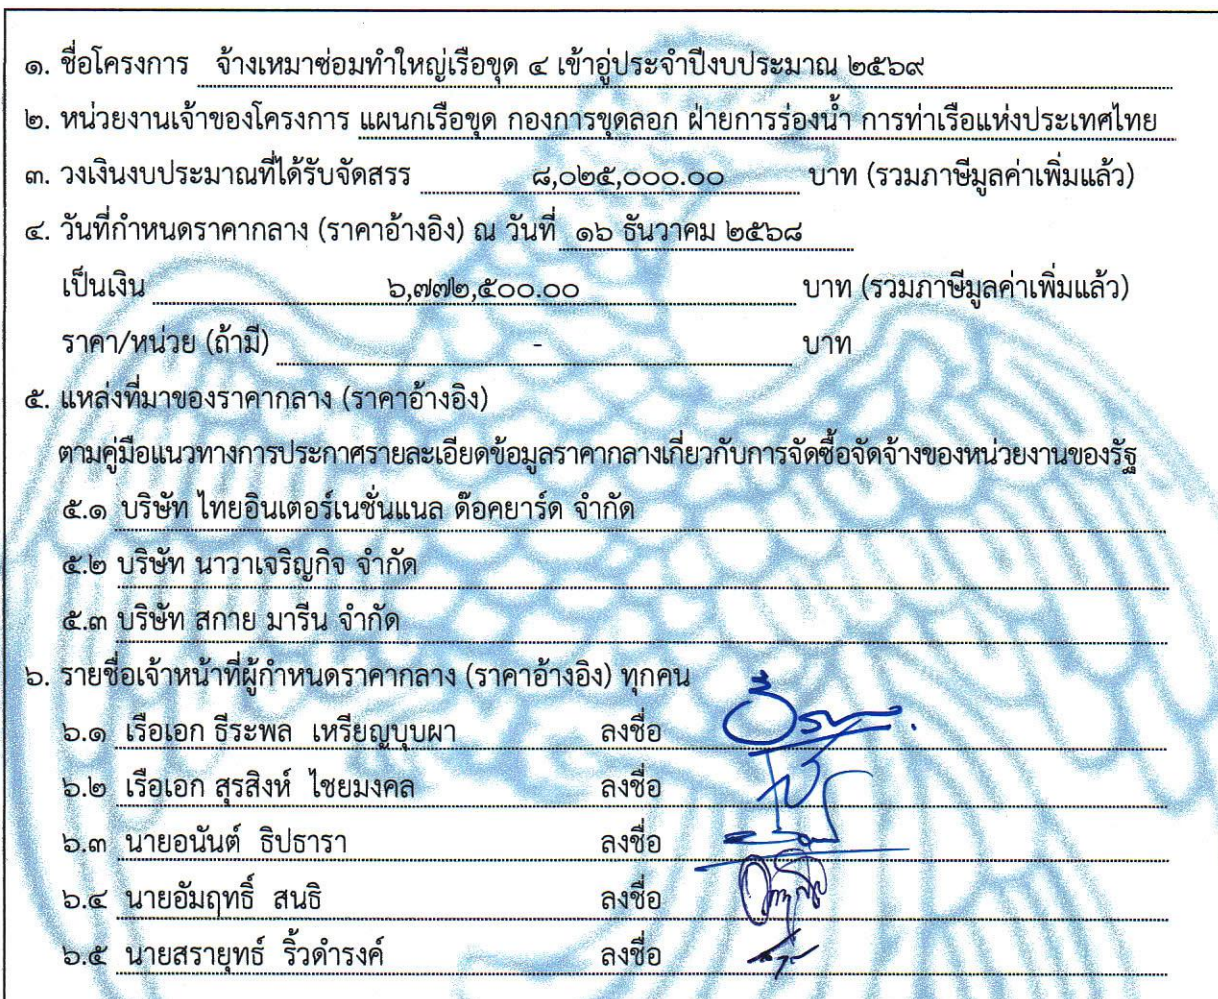 ๑. ชื่อโครงการ จ้างเหมาซ่อมทำใหญ่เรือขุด ๔ เข้าอู่ประจำปีงบประมาณ ๒๕๖๙
๒. หน่วยงานเจ้าของโครงการ แผนกเรือขุด กองการขุดลอก ฝ่ายการร่องน้ำ การท่าเรือแห่งประเทศไทย
๓. วงเงินงบประมาณที่ได้รับจัดสรร ๘,๐๒๕,๐๐๐.๐๐ บาท (รวมภาษีมูลค่าเพิ่มแล้ว)
๔. วันที่กำหนดราคากลาง (ราคาอ้างอิง) ณ วันที่ ๑๖ ธันวาคม ๒๕๖๘
เป็นเงิน ๖,๗๗๒,๕๐๐.๐๐ บาท (รวมภาษีมูลค่าเพิ่มแล้ว)
ราคา/หน่วย (ถ้ามี) - บาท
๕. แหล่งที่มาของราคากลาง (ราคาอ้างอิง)
ตามคู่มือแนวทางการประกาศรายละเอียดข้อมูลราคากลางเกี่ยวกับการจัดซื้อจัดจ้างของหน่วยงานของรัฐ
๕.๑ บริษัท ไทยอินเตอร์เนชั่นแนล ด๊อคยาร์ด จำกัด
๕.๒ บริษัท นาวาเจริญกิจ จำกัด
๕.๓ บริษัท สกาย มารีน จำกัด
๖. รายชื่อเจ้าหน้าที่ผู้กำหนดราคากลาง (ราคาอ้างอิง) ทุกคน
๖.๑ เรือเอก ธีระพล เหรียญบุบผา ลงชื่อ
๖.๒ เรือเอก สุรสิงห์ ไชยมงคล ลงชื่อ
๖.๓ นายอนันต์ ธิปธารา ลงชื่อ
๖.๔ นายอัมฤทธิ์ สนธิ ลงชื่อ
๖.๕ นายสรายุทธ์ ริ้วดำรงค์ ลงชื่อ